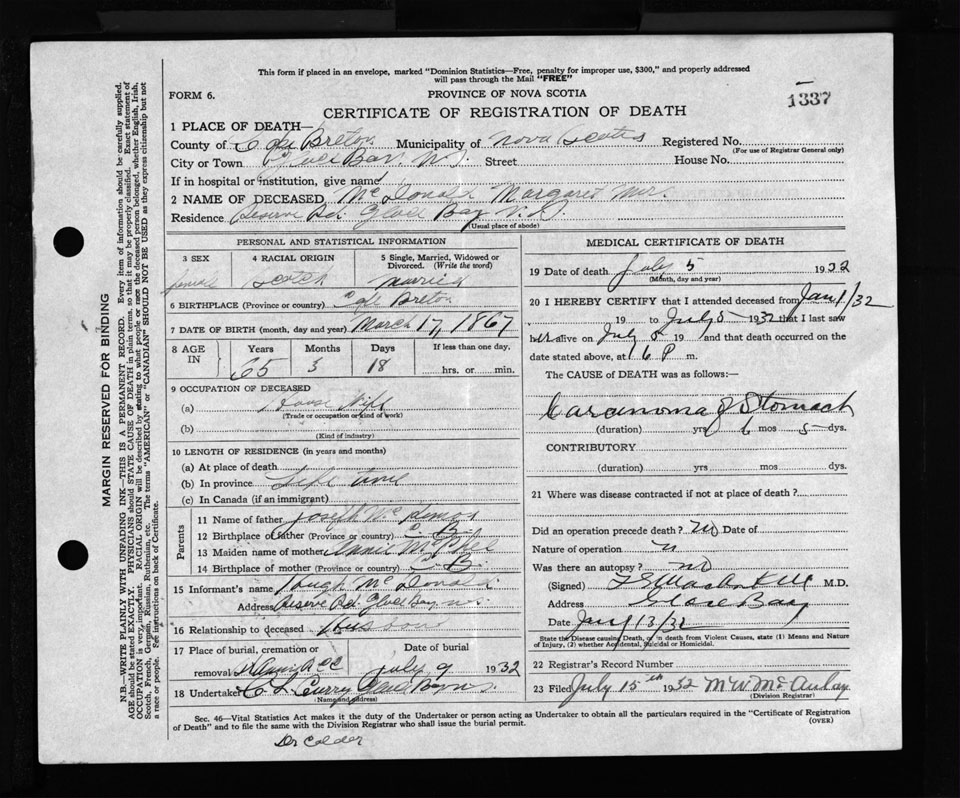 This form if placed in an envelope, marked "Dominion Statistics—Free, penalty for improper use, $300," and properly addressed
will pass through the Mail "FREE"
FORM 6. PROVINCE OF NOVA SCOTIA 1337
CERTIFICATE OF REGISTRATION OF DEATH
1 PLACE OF DEATH—
County of Cape Breton Municipality of Nova Scotia Registered No.
(For use of Registrar General only)
City or Town Glace Bay N.S. Street House No.
If in hospital or institution, give name
2 NAME OF DECEASED McDonald Margaret Mrs.
Residence Reserve Rd. Glace Bay N.S.
(Usual place of abode)
PERSONAL AND STATISTICAL INFORMATION
3 SEX 4 RACIAL ORIGIN 5 Single, Married, Widowed or
Divorced. (Write the word)
female Scotch Married
6 BIRTHPLACE (Province or country) Cape Breton
7 DATE OF BIRTH (month, day and year) March 17, 1867
8 AGE IN Years Months Days If less than one day,
65 3 18 hrs. or min.
9 OCCUPATION OF DECEASED
(a) House Wife
(Trade or occupation or kind of work)
(b)
(Kind of industry)
10 LENGTH OF RESIDENCE (in years and months)
(a) At place of death
(b) In province Life time
(c) In Canada (if an immigrant)
Parents
11 Name of father Joseph Mc
12 Birthplace of father (Province or country) C B
13 Maiden name of mother Annie McPhee
14 Birthplace of mother (Province or country) C. B.
15 Informant's name Hugh McDonald
Address Reserve Rd. Glace Bay N.S.
16 Relationship to deceased Husband
17 Place of burial, cremation or Date of burial
removal July 9 1932
18 Undertaker C L Curry Glace Bay N.S.
(Name and address)
MEDICAL CERTIFICATE OF DEATH
19 Date of death July 5 1932
(Month, day and year)
20 I HEREBY CERTIFY that I attended deceased from Jan 1/32
19 to July 5 1932 that I last saw
her alive on July 5 19 and that death occurred on the
date stated above, at 6 P m.
The CAUSE of DEATH was as follows:—
Carcinoma of Stomach
(duration) yrs. 6 mos 5 dys.
CONTRIBUTORY
(duration) yrs mos. dys.
21 Where was disease contracted if not at place of death?
Did an operation precede death? no Date of
Nature of operation
Was there an autopsy? no
(Signed) M.D.
Address Glace Bay
Date
State the Disease causing Death, or in death from Violent Causes, state (1) Means and Nature
of Injury, (2) whether Accidental, Suicidal or Homicidal.
22 Registrar's Record Number
23 Filed July 15th 1932 M W McAulay
(Division Registrar)
Sec. 46—Vital Statistics Act makes it the duty of the Undertaker or person acting as Undertaker to obtain all the particulars required in the "Certificate of Registration
of Death" and to file the same with the Division Registrar who shall issue the burial permit. (OVER)
Dr Calder
MARGIN RESERVED FOR BINDING
N.B.—WRITE PLAINLY WITH UNFADING INK—THIS IS A PERMANENT RECORD. Every item of information should be carefully supplied.
AGE should be stated EXACTLY. PHYSICIANS should STATE CAUSE OF DEATH in plain terms, so that it may be properly classified. Exact statement of
OCCUPATION is very important. RACIAL ORIGIN will be described by stating to what people or race the deceased person belonged, whether English, Irish,
Scotch, French, German, Russian, Ruthenian, etc. The terms "AMERICAN" or "CANADIAN" SHOULD NOT BE USED as they express citizenship but not
a race or people. See instructions on back of Certificate.